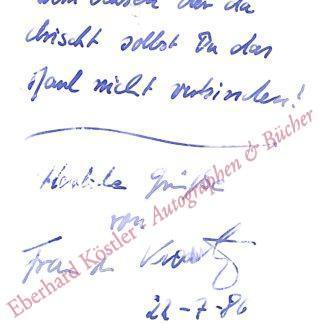 dem Ochsen der da
drischt sollst Du das
Maul nicht verbinden!
Herzliche Grüße
von
22-7-86
Eberhard Köstler - Autographen & Bücher